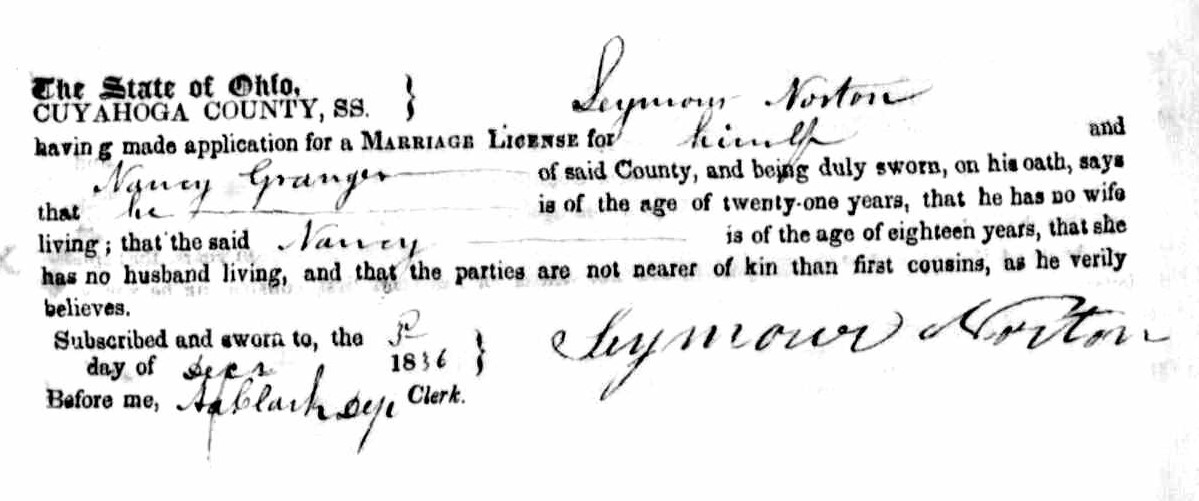 The State of Ohio,
CUYAHOGA COUNTY, SS. } Seymour Norton
having made application for a MARRIAGE LICENSE for himself and
Nancy Granger of said County, and being duly sworn, on his oath, says
that he is of the age of twenty-one years, that he has no wife
living; that the said Nancy is of the age of eighteen years, that she
has no husband living, and that the parties are not nearer of kin than first cousins, as he verily
believes.
Subscribed and sworn to, the } Seymour Norton
day of 1836
Before me, Clark Dep Clerk.